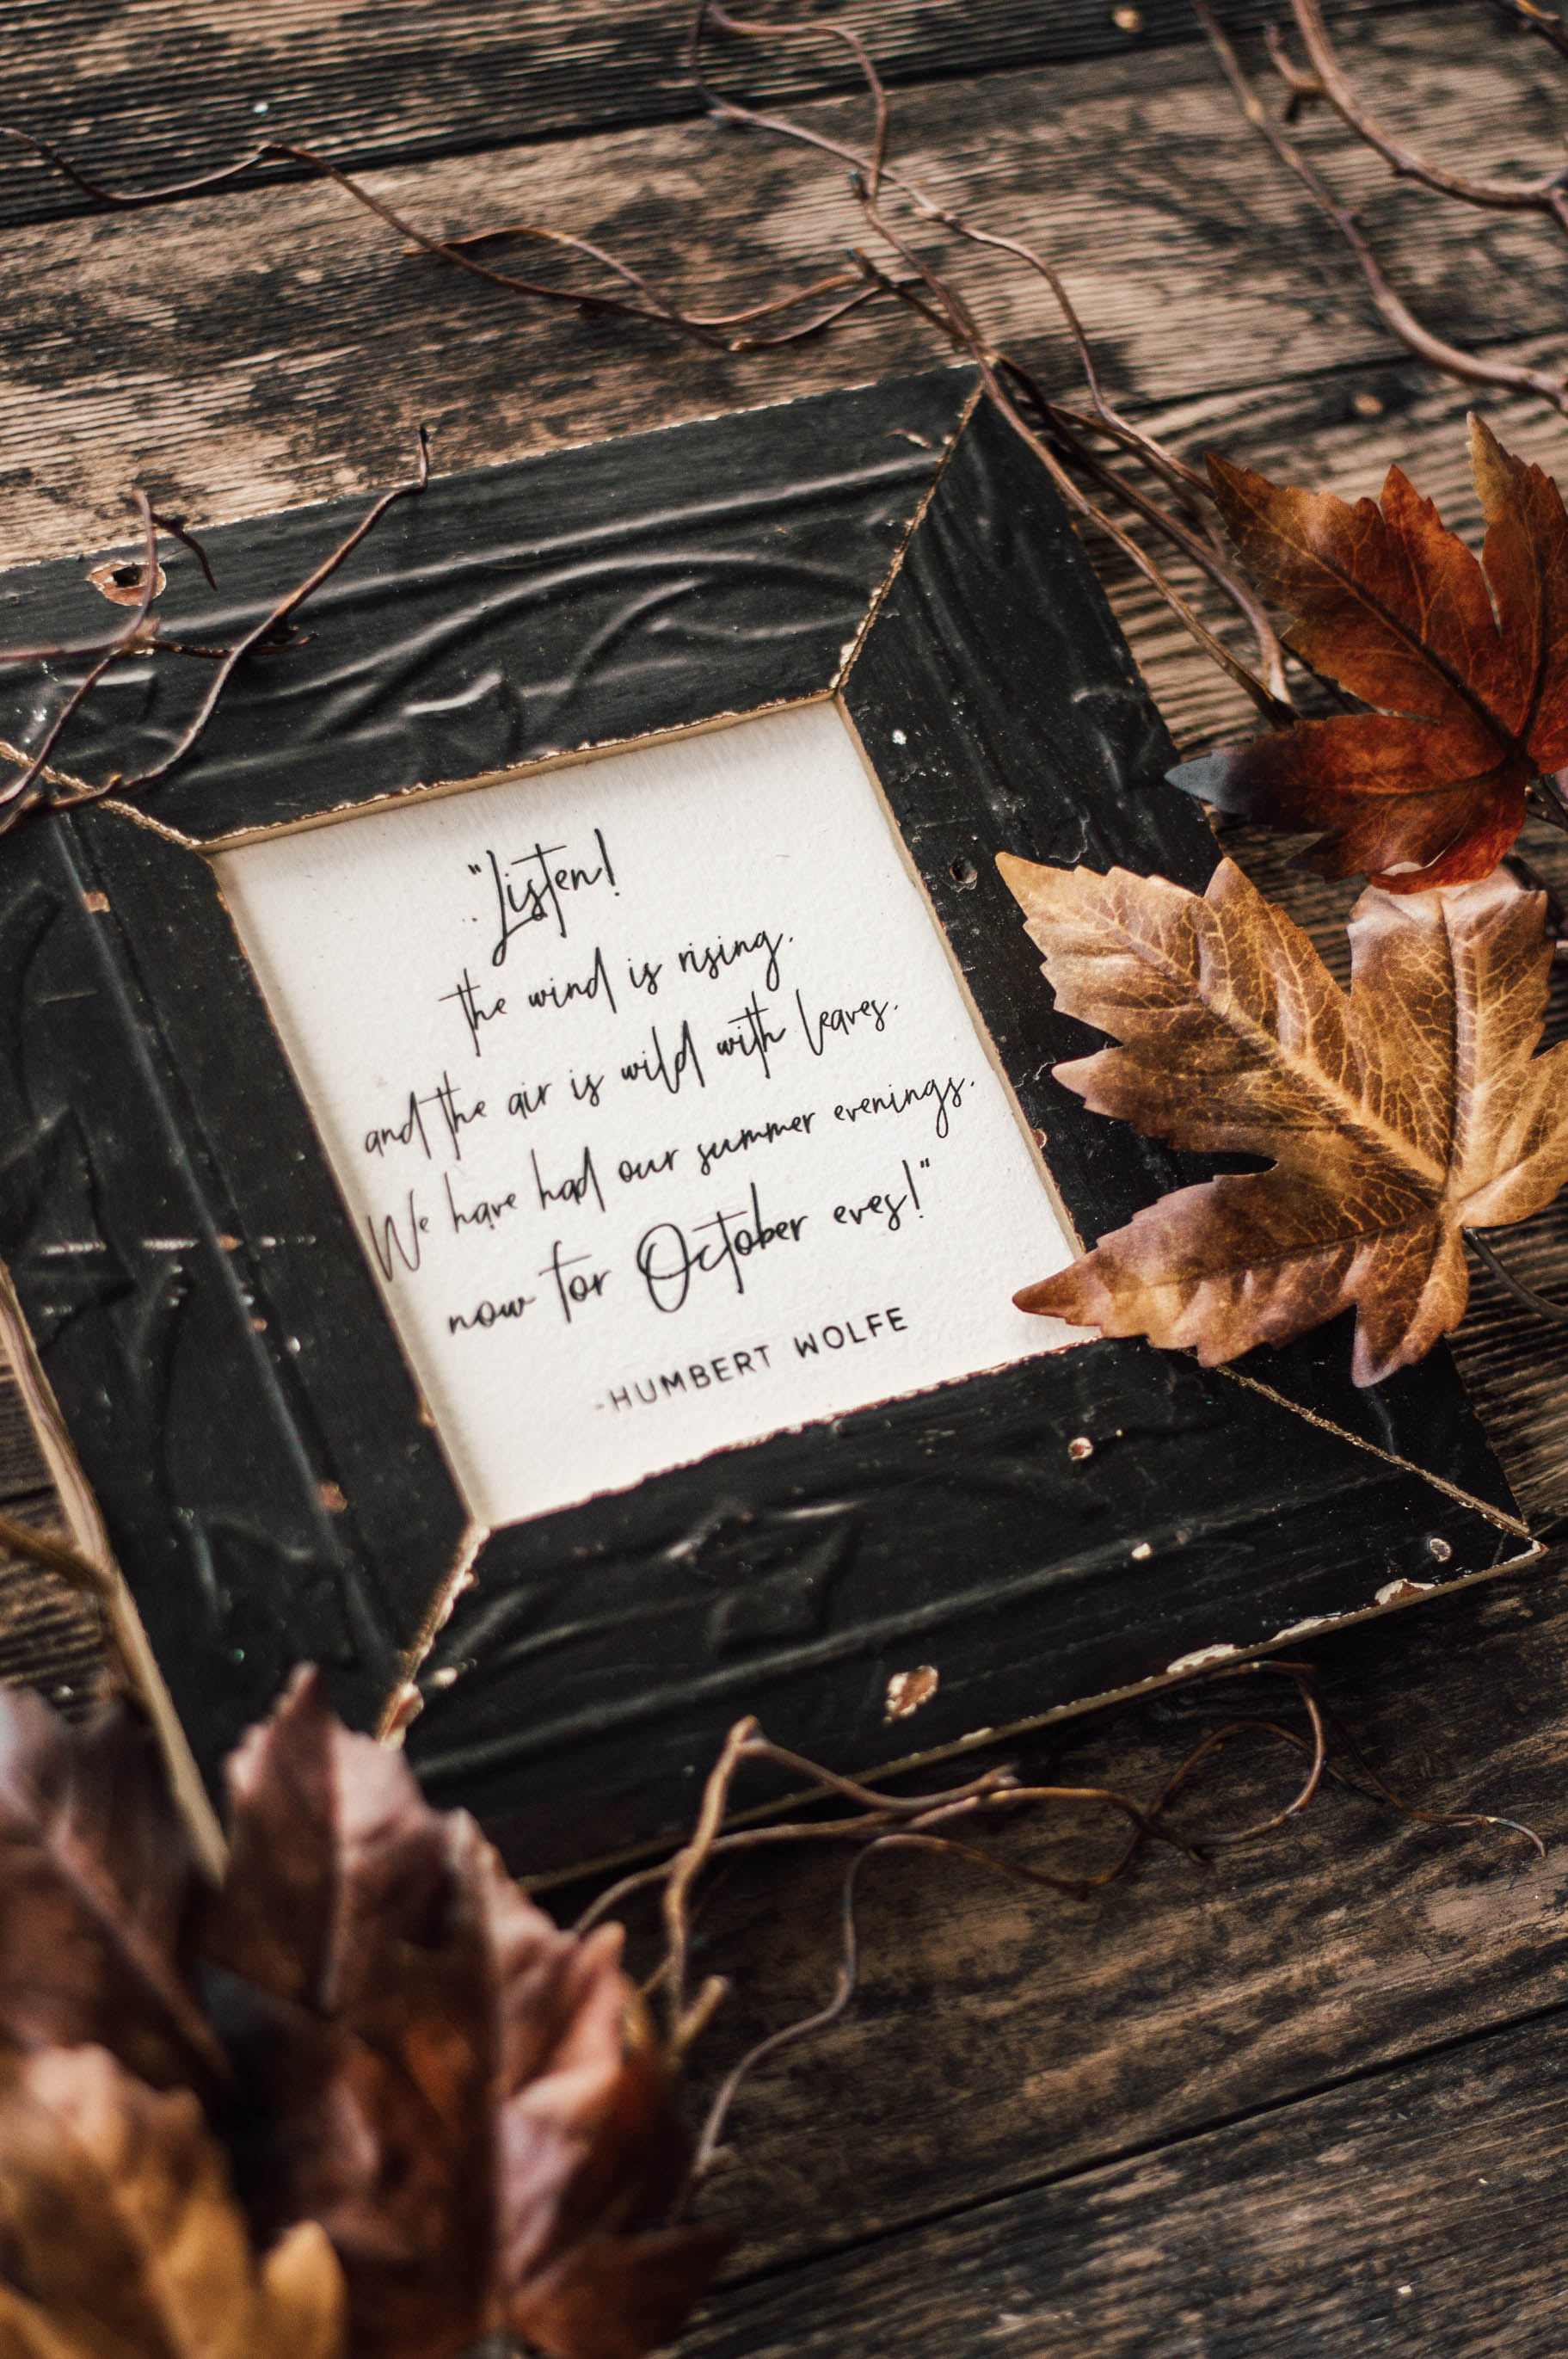 "Listen!
the wind is rising,
and the air is wild with leaves.
We have had our summer evenings,
now for October eves!"
-HUMBERT WOLFE